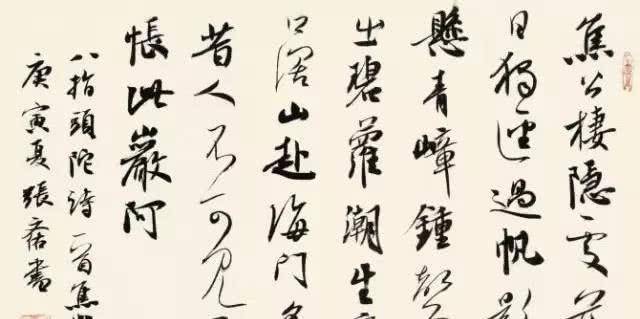 焦公棲隱處
日獨經過帆影
懸青嶂鍾聲
出碧蘿潮生
口闊山赴海門
昔人不可見
悵此巖阿
八指頭陀詩一首焦
庚寅夏張書